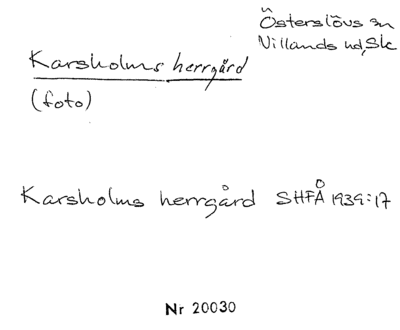 Österslövs sn
Villands hd, Sk
Karsholms herrgård
(foto)
Karsholms herrgård SHFÅ 1939:17
Nr 20030